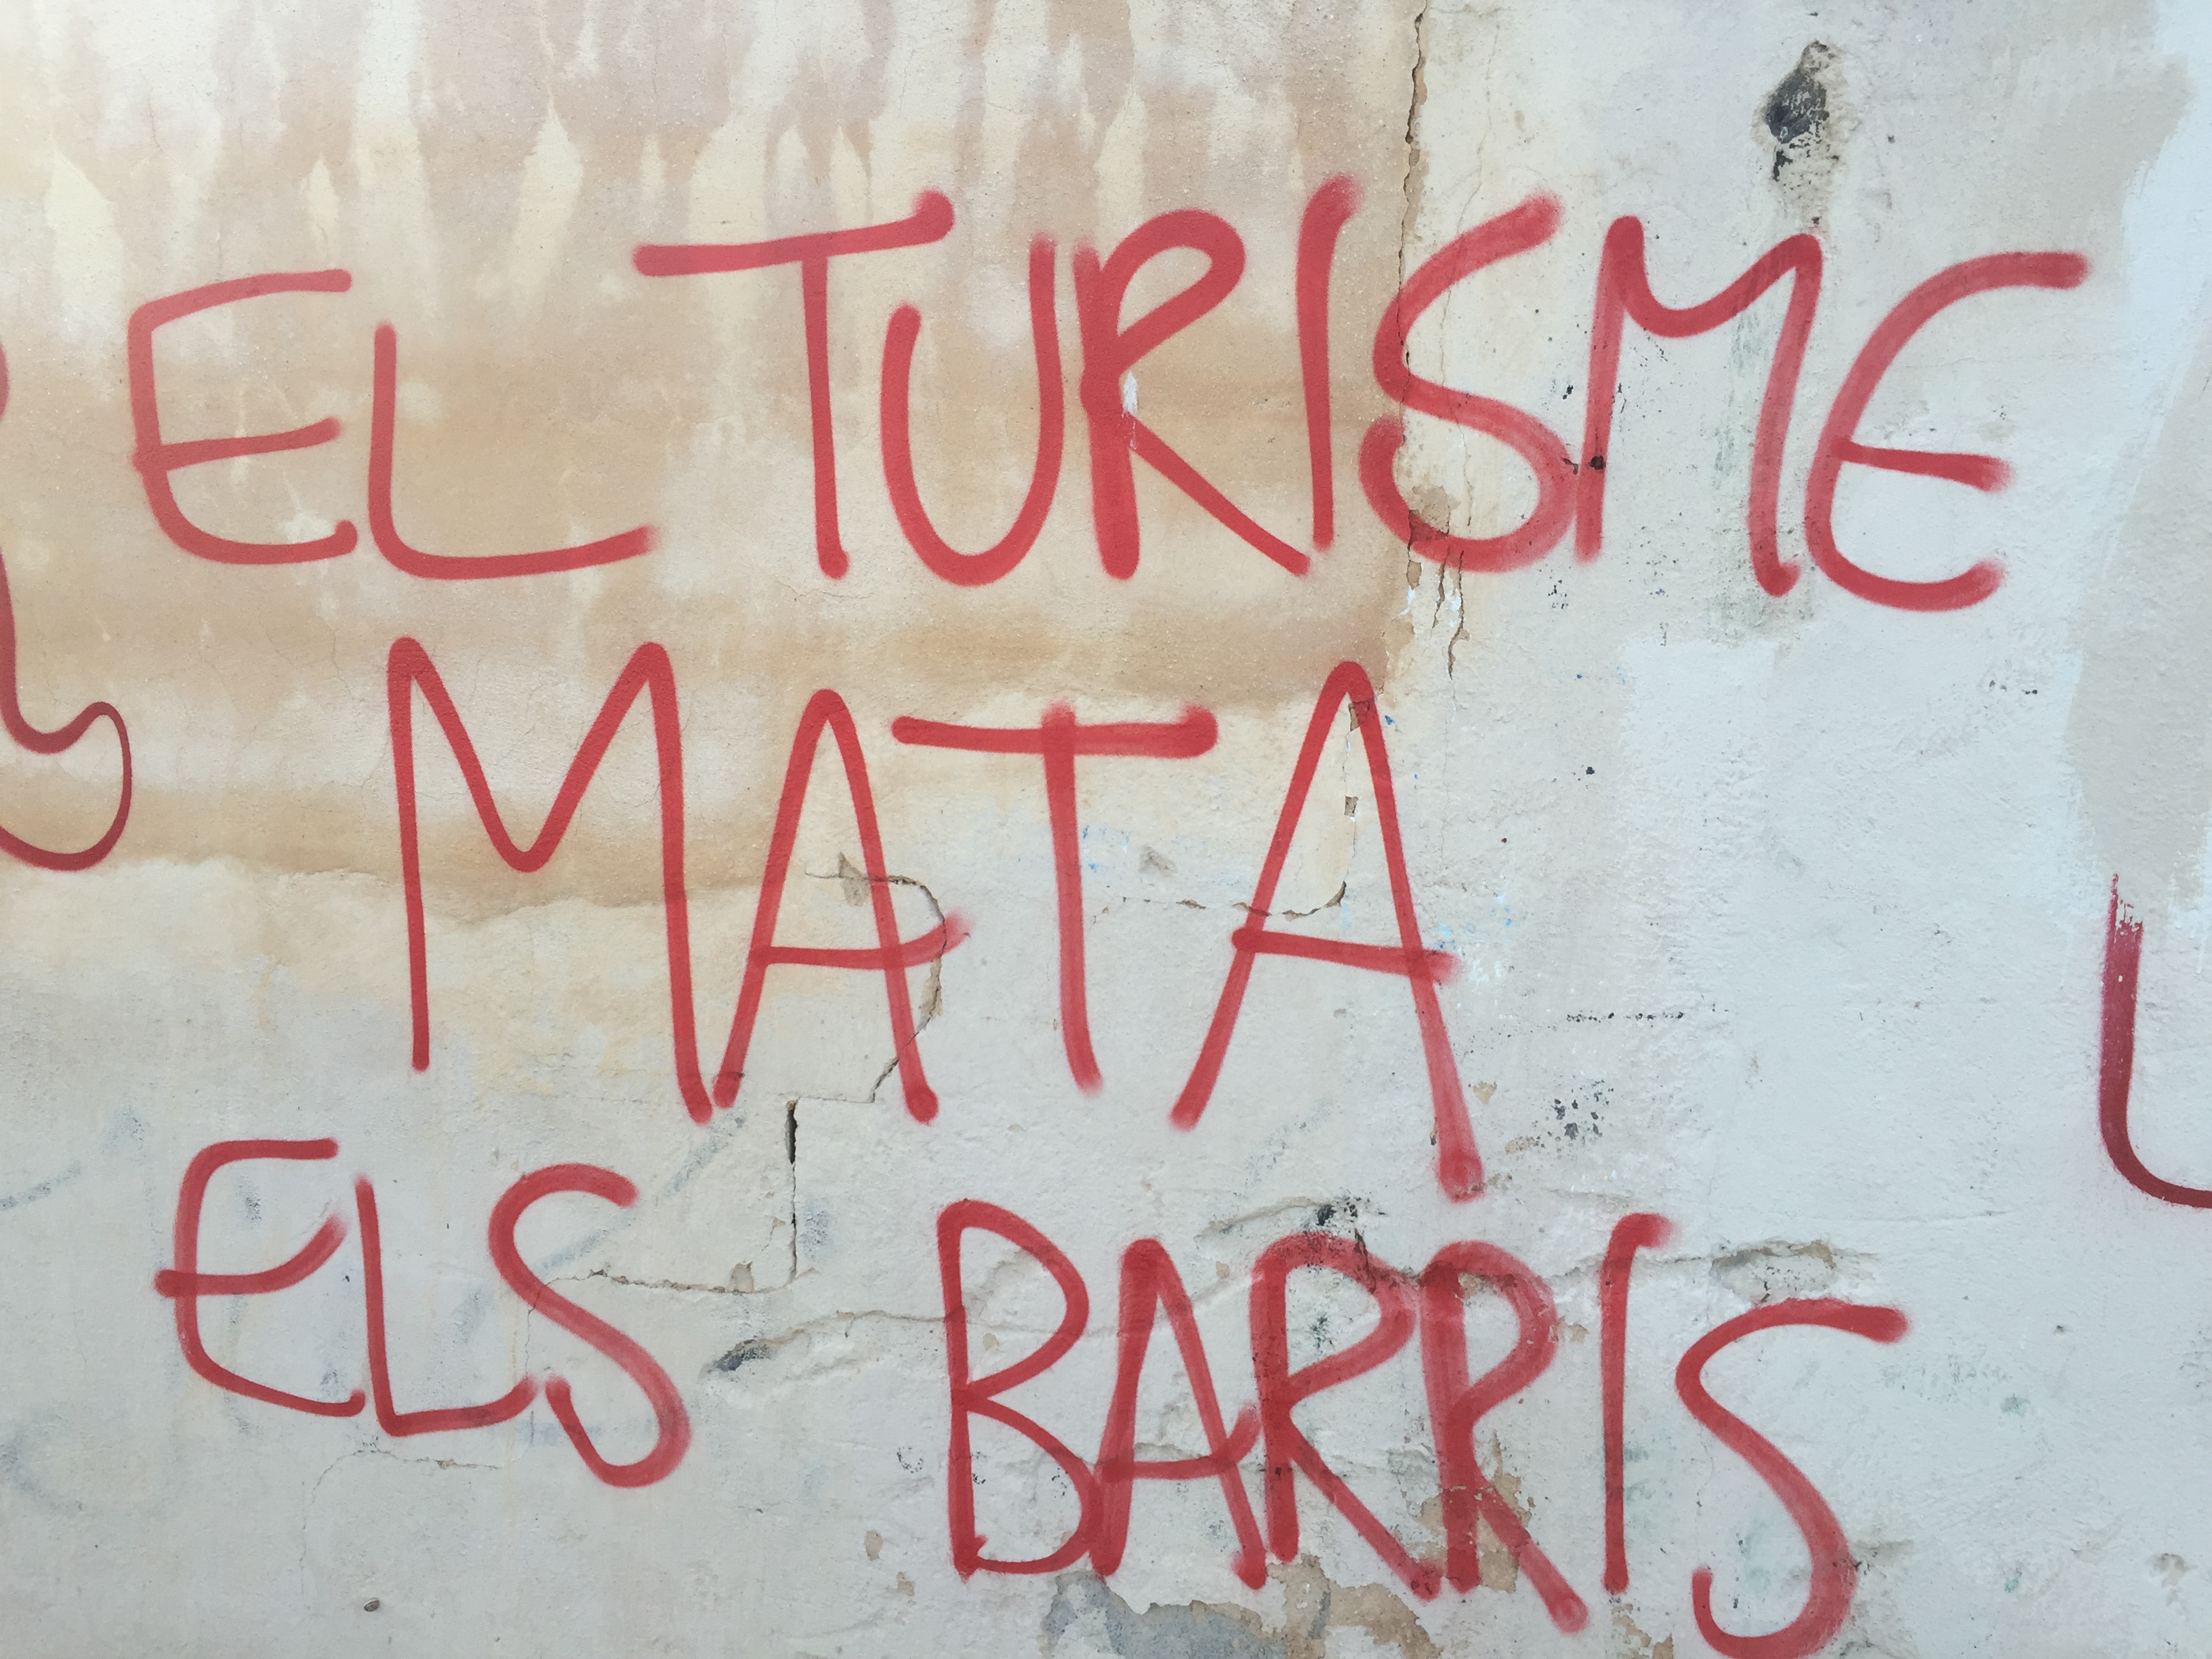 EL TURISME
MATA
ELS BARRIS